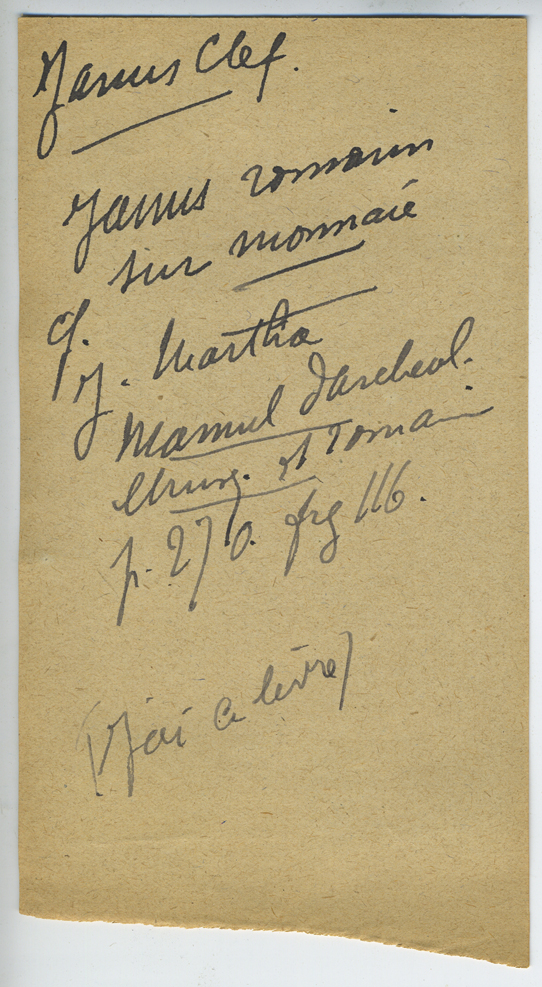 Janus Clef.
Janus romain
sur monnaie
cf.
J. Martha
Manuel d'archeol.
étrusq. et romain
p. 270. fig 116.
(J'ai ce livre)